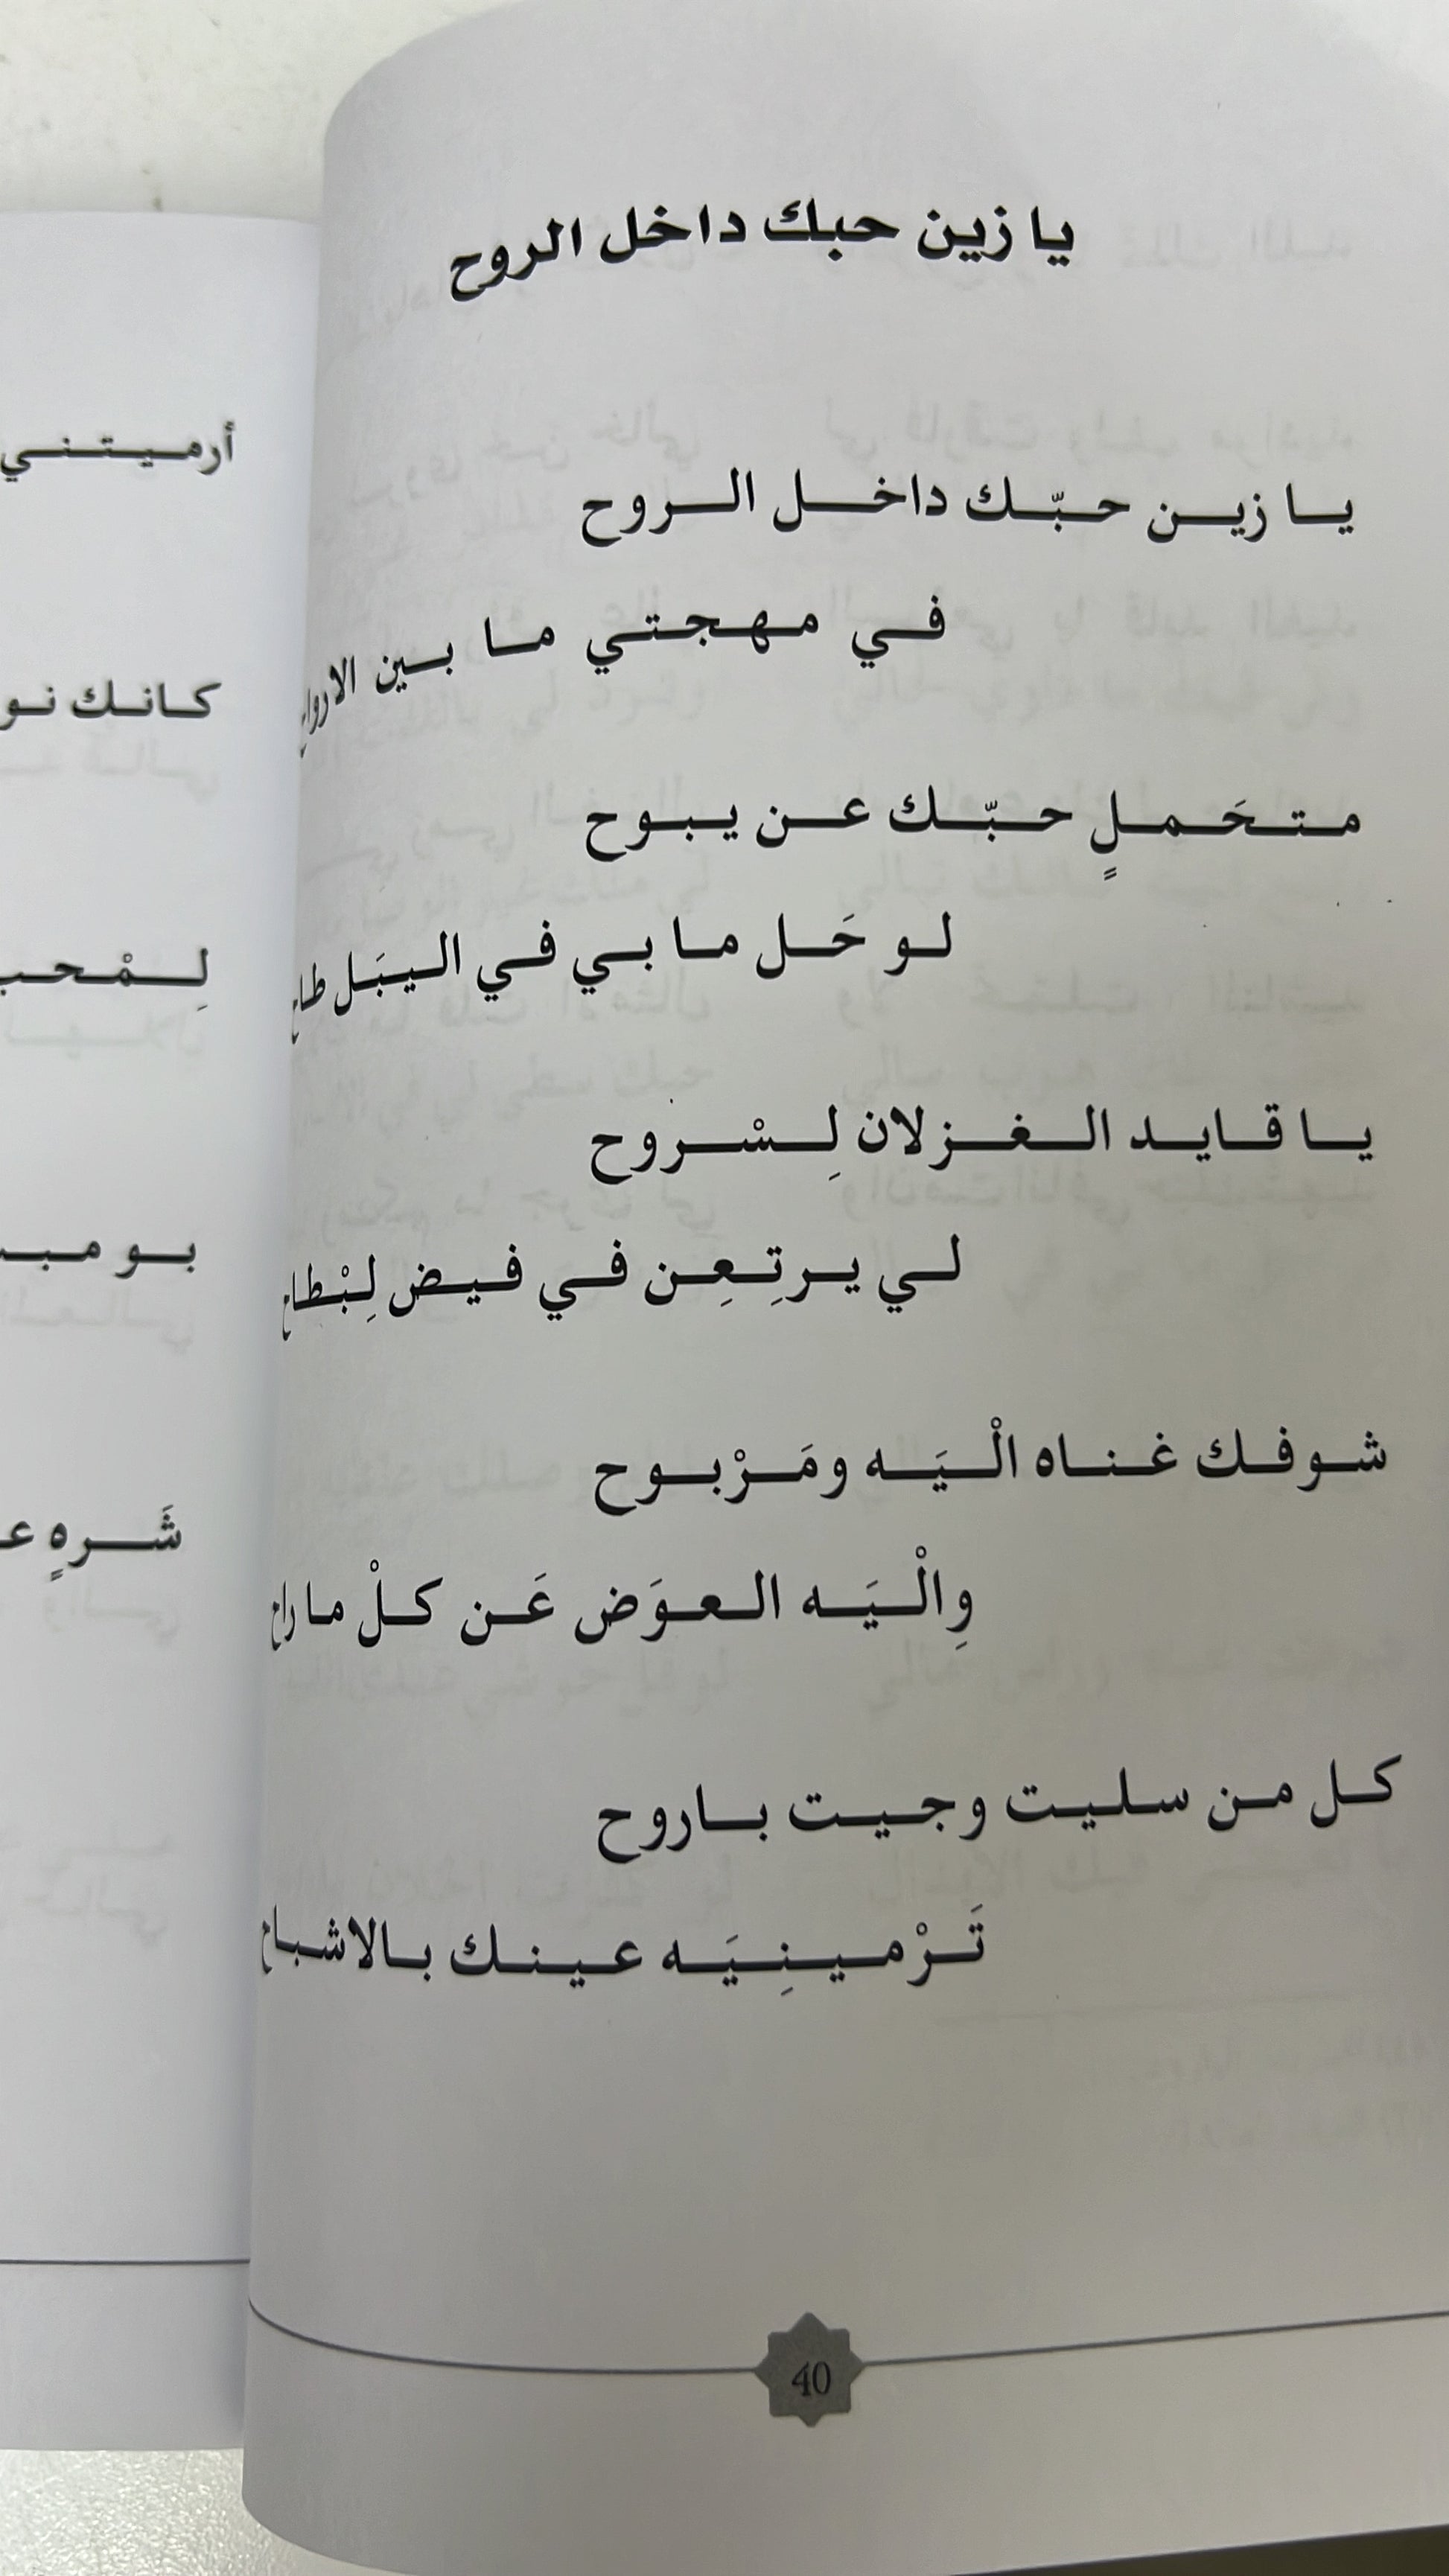 يا زين حبك داخل الروح
يا زين حبّك داخل الروح
في مهجتي ما بين الارواح
متحَملٍ حبّك عن يبوح
لو حَل ما بي في اليبَل طاح
يا قايد الغزلان لِسْروح
لي يرتِعِن في فيض لِبْطاح
شوفك غناه الْيَه ومَرْبوح
وِالْيَه العوَض عَن كلْ ما راح
كل من سليت وجيت باروح
تَرْمينِيَه عينك بالاشباح
40
أرميتني
كانك
بو
شَرهٍ